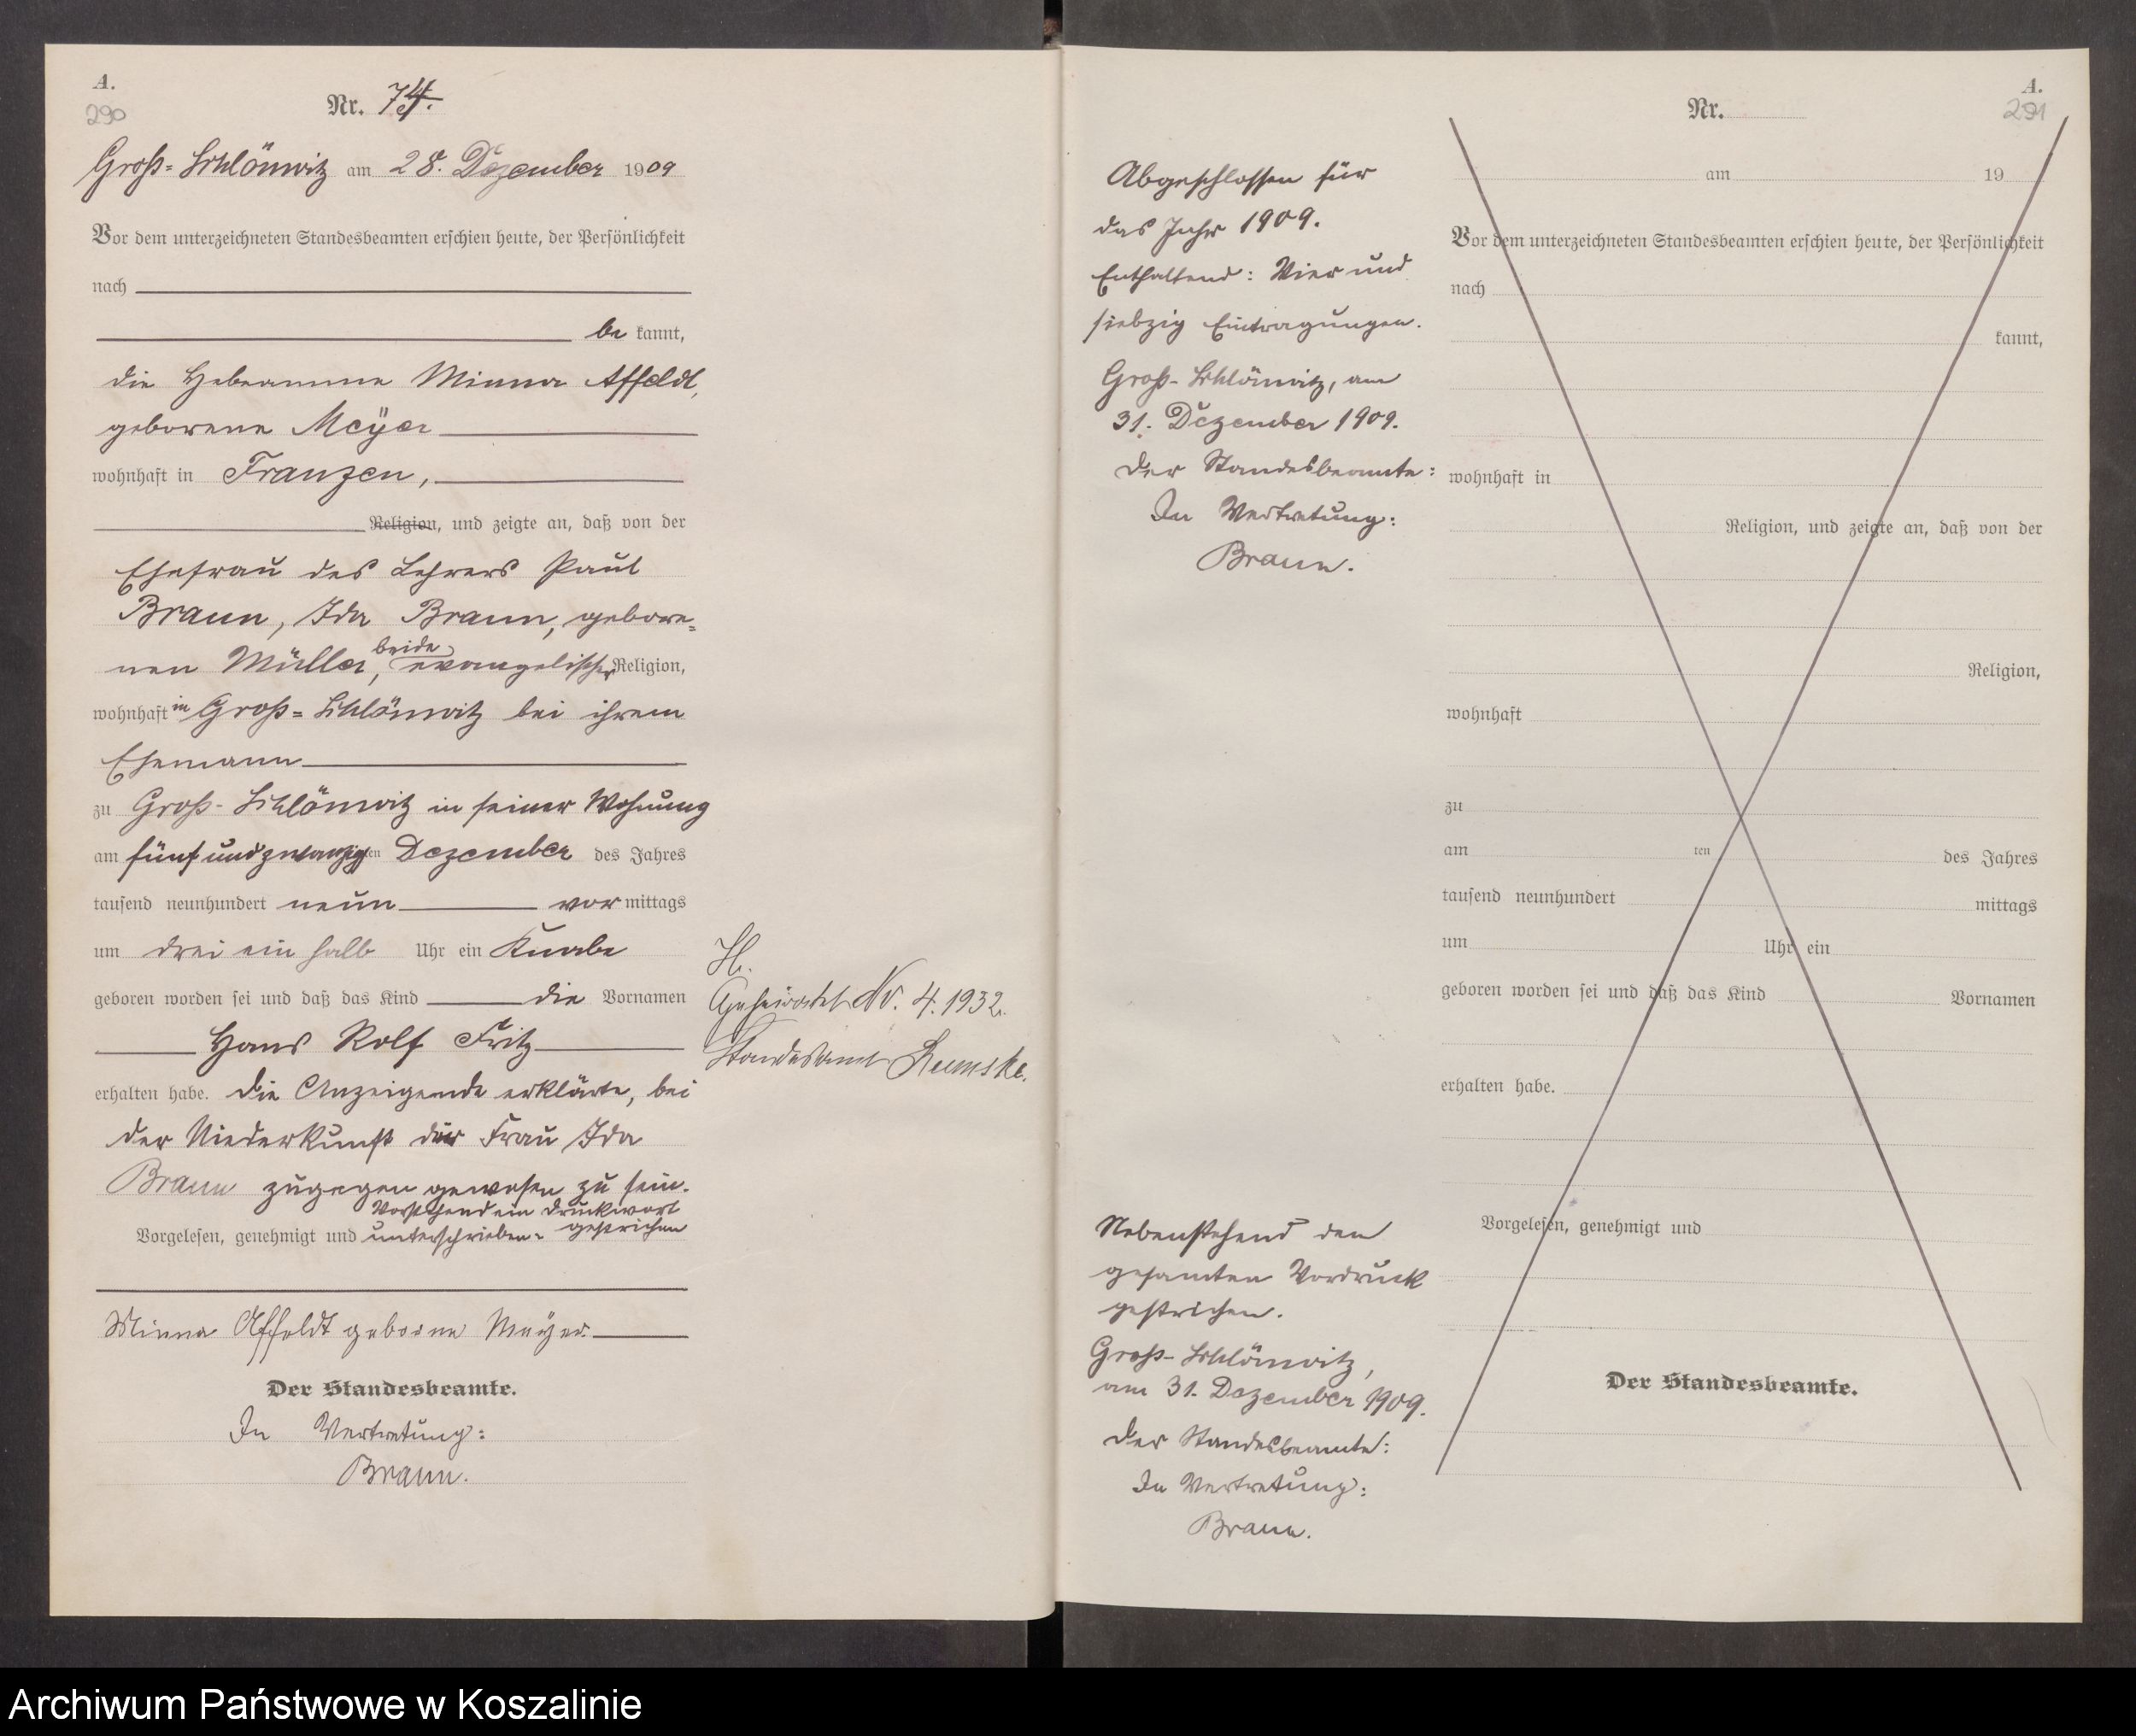 A.
290
Nr. 74.
Groß-Schlönwitz am 28. Dezember 1909
Vor dem unterzeichneten Standesbeamten erschien heute, der Persönlichkeit
nach
be kannt,
die Hebeamme Minna Affeldt,
geborene Meÿer
wohnhaft in Franzen,
Religion, und zeigte an, daß von der
Ehefrau des Lehrers Paul
Braun, Ida Braun, gebore-
nen Müller, beide evangelischer Religion,
wohnhaft in Groß-Schlönwitz bei ihrem
Ehemann
zu Groß-Schlönwitz in seiner Wohnung
am fünf und zwanzigsten Dezember des Jahres
tausend neunhundert neun vor mittags
um drei ein halb Uhr ein Knabe
geboren worden sei und daß das Kind die Vornamen
Hans Rolf Fritz
erhalten habe. Die Anzeigende erklärte, bei
der Niederkunft der Frau Ida
Braun zugegen gewesen zu sein.
Vorstehend ein Druckwort
gestrichen
Vorgelesen, genehmigt und unterschrieben.
Minna Affeldt geborne Meÿer
Der Standesbeamte.
In Vertretung:
Braun.
H.
Geheiratet Nr. 4. 1932.
Standesamt
Abgeschlossen für
das Jahr 1909.
Enthaltend: Vier und
siebzig Eintragungen.
Groß-Schlönwitz, am
31. Dezember 1909.
Der Standesbeamte:
In Vertretung:
Braun.
Nebenstehend den
gesamten Vordruck
gestrichen.
Groß-Schlönwitz,
am 31. Dezember 1909.
Der Standesbeamte:
In Vertretung:
Braun.
A.
291
Nr.
am 19
Vor dem unterzeichneten Standesbeamten erschien heute, der Persönlichkeit
nach
kannt,
wohnhaft in
Religion, und zeigte an, daß von der
Religion,
wohnhaft
zu
am ten des Jahres
tausend neunhundert mittags
um Uhr ein
geboren worden sei und daß das Kind Vornamen
erhalten habe.
Vorgelesen, genehmigt und
Der Standesbeamte.
Archiwum Państwowe w Koszalinie